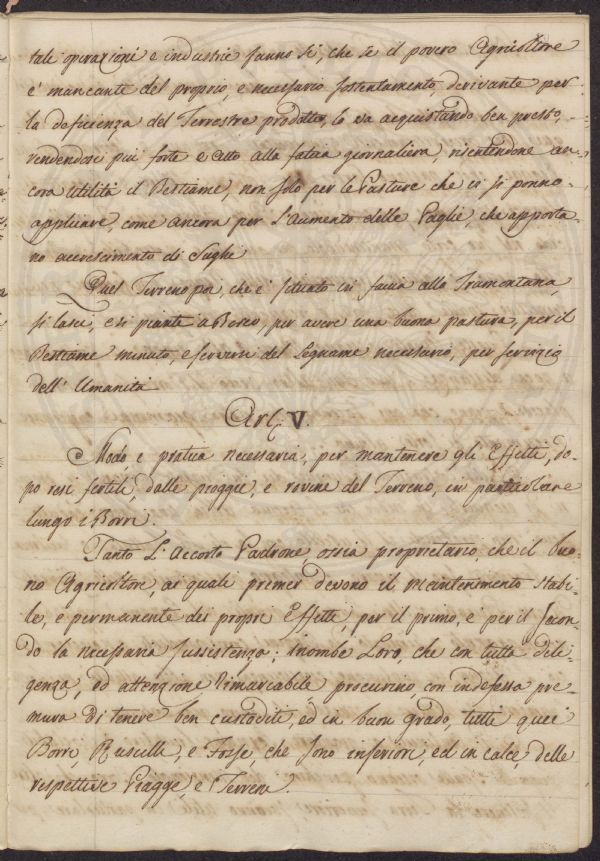 tale operazioni e industrie fanno sì, che se il povero Agricoltore
è mancante del proprio, e necessario sostentamento, derivante per
la deficienza del Terrestre prodotto, lo va acquistando ben presto,
vendendosi più forte e atto alla fatica giornaliera, risentendone an
cora utilità il Bestiame, non solo per le Pasture che ci si ponno
applicare, come ancora per L'Aumento delle Paglie, che apporta
no accrescimento di Sughi
Quel Terreno poi, che è situato in faccia alla Tramontana,
si lasci, e si piante a Bosco, per avere una buona pastura, per il
Bestiame minuto, e servirsi del Legname necessario, per servizio
dell' Umanità
Art: V.
Modo, e pratica necessaria, per mantenere gli Effetti, do-
po resi fertili, dalle pioggie, e rovine del Terreno, in particolare
lungo i Borri.
Tanto L'Accorto Padrone ossia proprietario, che il buo-
no Agricoltore, ai quali premer devono il mantenimento stabi-
le, e permanente dei propri Effetti, per il primo, e per il secon-
do la necessaria sussistenza; incombe Loro, che con tutta dili-
genza, ed attenzione rimarcabile procurino, con indefessa pre-
mura di tenere ben custoditi, ed in buon grado, tutti quei
Borri, Ruscelli, e Fosse, che sono inferiori, ed in calce, delle
respettive Piagge, e Terreni.